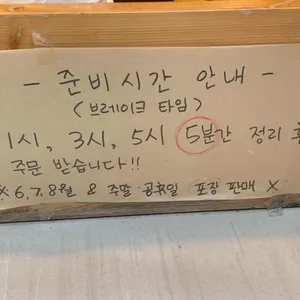 - 준비시간 안내 -
(브레이크 타임)
1시, 3시, 5시 5분간 정리 후
주문 받습니다!!
※ 6,7,8월 & 주말·공휴일 포장 판매 X